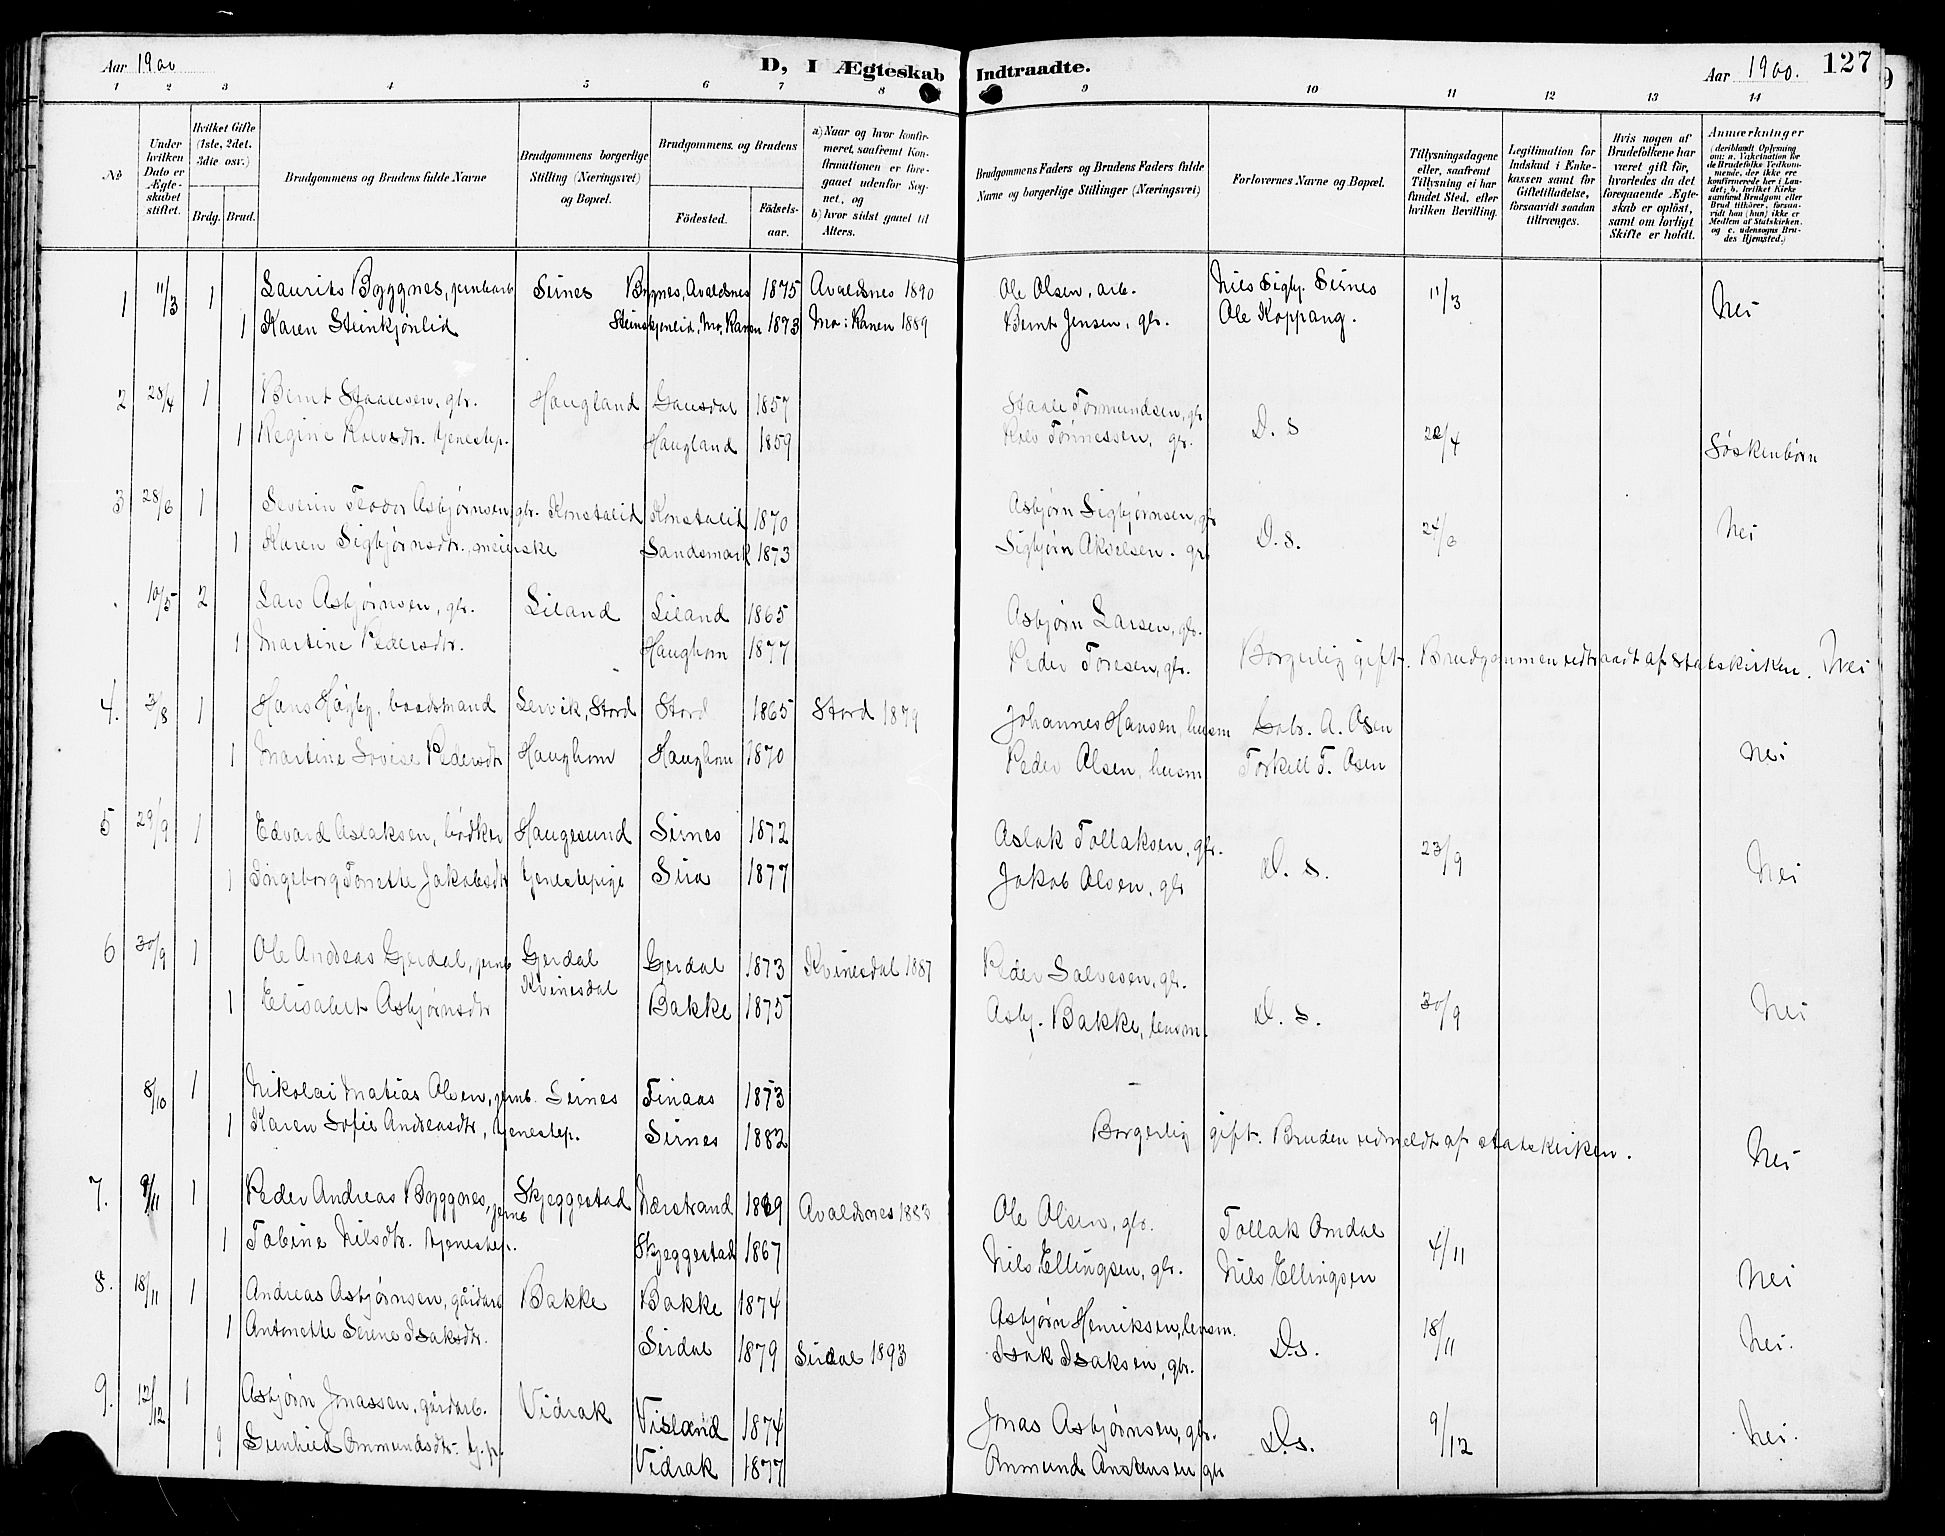 Aar 1900
D, I Ægteskab Indtraadte.
Aar 1900. 127
1 2 3 4 5 6 7 8 9 10 11 12 13 14
No
Under hvilken Dato er Ægteskabet stiftet.
Hvilket Gifte (1ste, 2det, 3die osv.)
Brdg. Brud.
Brudgommens og Brudens fulde Navne
Brudgommens borgerlige Stilling (Næringsvei) og Bopæl.
Brudgommens og Brudens
Födested.
Födselsaar.
a) Naar og hvor konfirmeret, saafremt Konfirmationen er foregaaet udenfor Sognet, og
b) hvor sidst gaaet til Alters.
Brudgommens Faders og Brudens Faders fulde Navne og borgerlige Stillinger (Næringsvei)
Forlovernes Navne og Bopæl.
Tillysningsdagene eller, saafremt Tillysning ei har fundet Sted, efter hvilken Bevilling.
Legitimation for Indskud i Enkekassen samt for Giftetilladelse, forsaavidt saadan tiltrænges.
Hvis nogen af Brudefolkene har været gift før, hvorledes da det foregaaende Ægteskab er oplöst, samt om lovligt Skifte er holdt.
Anmærkninger
1 11/3 1 Laurits Byggnes, jernbarb Sirnes Bygnes, Avaldsnes 1875 Avaldsnes 1890 Ole Olsen, arb. Nils Sigbj. Sirnes 11/3 Nei
1 Karen Steinkjønlid Steinkjønlid, Mo, Ranen 1873 Mo i Ranen 1889 Bernt Jensen, gbr. Ole Koppang.
2 28/4 1 Bernt Staalesen, gbr. Haugland Gausdal 1857 Staale Tormundsen, gbr D. S 22/4 Søskenbørn
1 Regine Rolvsdtr. tjenestep. Haugland 1859 Rolv Tønnessen, gbr.
3 28/6 1 Severin Teodor Asbjørnsen gbr. Konstalid Konstalid 1870 Asbjørn Sigbjørnsen, gbr D. S. 24/6 Nei
1 Karen Sigbjørnsdtr., meierske Sandsmark 1873 Sigbjørn Akselsen. gbr
10/5 2 Lars Asbjørnsen, gbr. Liland Liland 1865 Asbjørn Larsen, gbr.
1 Martine Pedersdtr. Haughom 1877 Peder Toresen, gbr. Borgerlig gift. Brudgommen udtraadt af statskirken. Nei
4. 3/8 1 Hans Høgby, baadsmand Lervik, Stord Stord 1865 Stord 1879 Johannes Hansen, husm Gabr. A. Osen
1 Martine Lovise Pedersdtr Haughom Haughom 1870 Peder Olsen, husm Torkell T. Osen Nei
5 29/9 1 Edvard Aslaksen, bødker Haugesund Sirnes 1872 Aslak Tollaksen, gbr. D. S. 23/9 Nei
1 Ingeborg Tonette Jakobsdtr Tjenestepige Sira 1877 Jakob Olsen, gbr
6 30/9 1 Ole Andreas Gjerdal, jernb Gjerdal Kvinesdal Gjerdal 1873 Kvinesdal 1887 Peder Salvesen, gbr. D. S. 30/9 Nei
1 Elisabet Asbjørnsdtr Bakke 1875 Asbj. Bakke, lensm.
8/10 1 Nikolai Matias Olsen, jernb. Sirnes Finaas 1873 —
1 Karen Sofie Andreasdtr, tjenestep. Sirnes 1882 Borgerlig gift. Bruden udmeldt af statskirken. Nei
7. 9/11 1 Peder Andreas Byggnes, jernb Skjeggestad Nærstrand 1869 Avaldsnes 1883 Ole Olsen, gbr. Tollak Omdal 4/11
1 Tobine Nilsdtr. tjenestep. Skjeggestad 1867 Nils Ellingsen, gbr. Nils Ellingsen Nei
8. 18/11 1 Andreas Asbjørnsen, gårdarb Bakke Bakke 1874 Asbjørn Henriksen, lensm. D.s. 18/11 Nei.
1 Antonette Serine Isaksdtr. Sirdal 1879 Sirdal 1893 Isak Isaksen, gbr.
9. 12/12 1 Asbjørn Jonassen, gårdarb. Vidrak Visland 1874 Jonas Asbjørnsen, gbr. D.s. 9/12 Nei.
Gunhild Ommundsdtr. tj.p. Vidrak 1877 Ommund Anstensen gbr